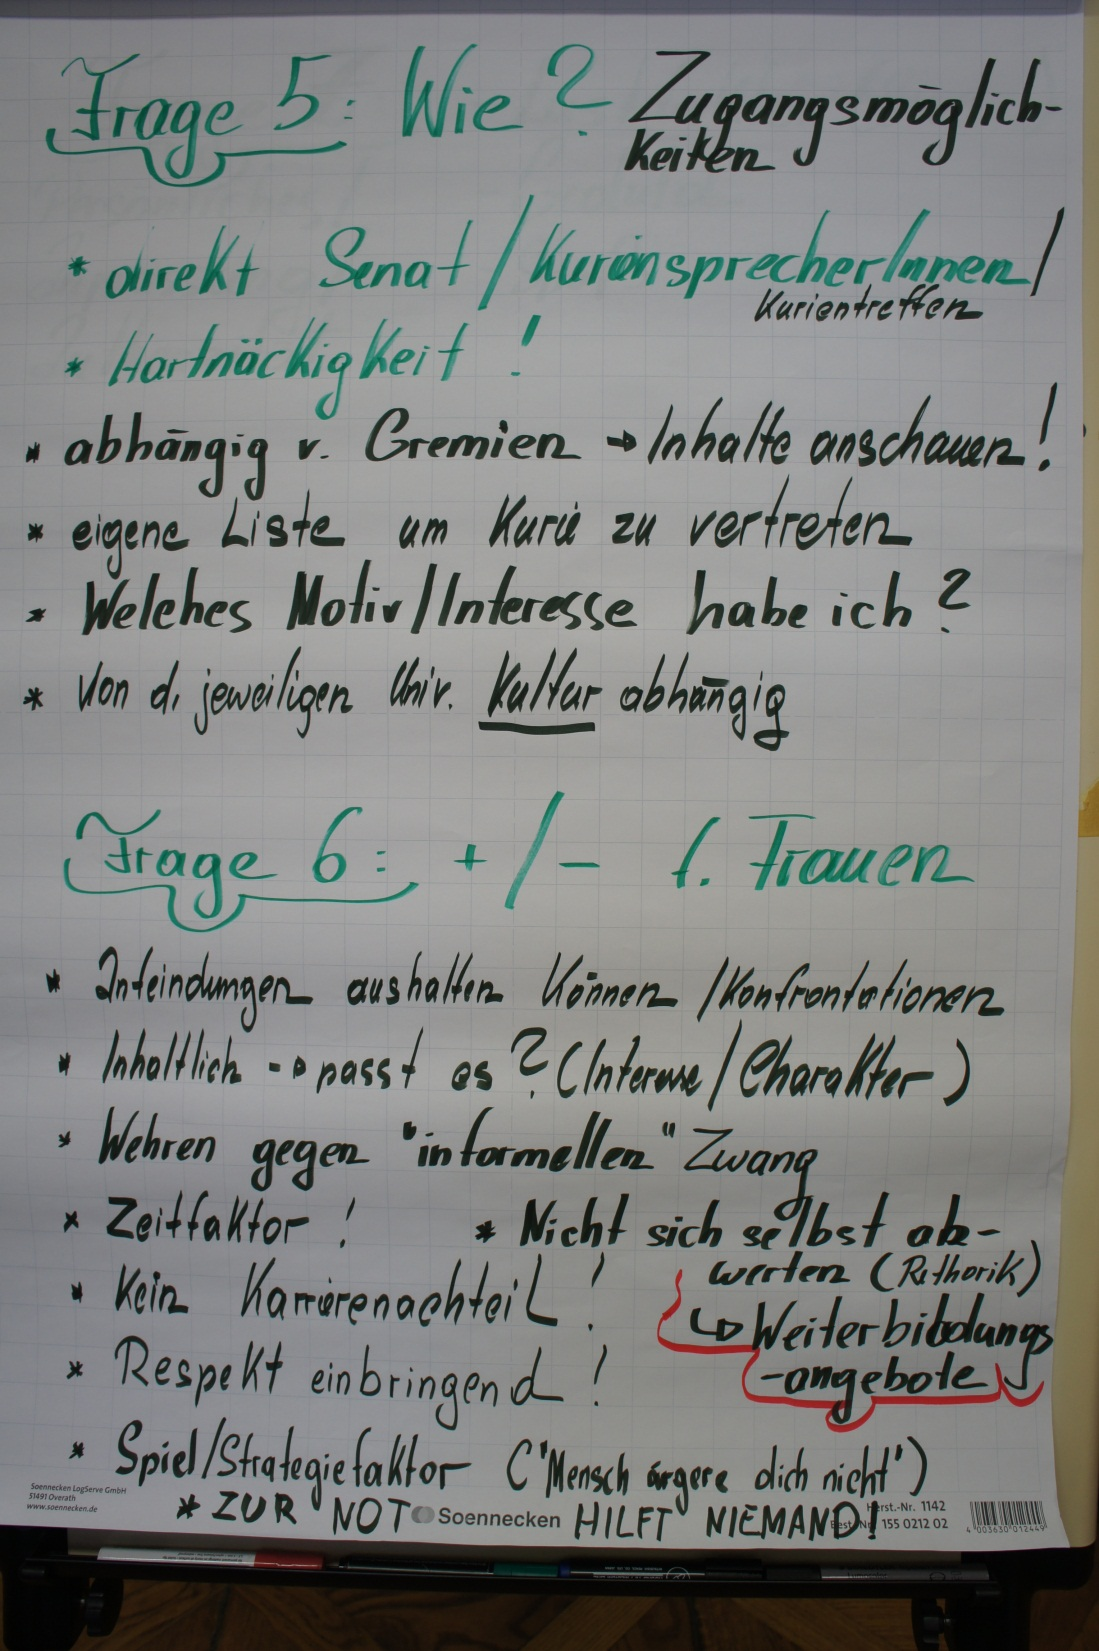 Frage 5: Wie? Zugangsmöglich-
keiten
* direkt Senat / KuriensprecherInnen /
Kurientreffen
* Hartnäckigkeit!
* abhängig v. Gremien → Inhalte anschauen!
* eigene Liste um Kurie zu vertreten
* Welches Motiv/Interesse habe ich?
* Von d. jeweiligen Univ. Kultur abhängig
Frage 6: + / - f. Frauen
* Anfeindungen aushalten können / Konfrontationen
* Inhaltlich -→ passt es? (Interesse / Charakter)
* Wehren gegen "informellen" Zwang
* Zeitfaktor!
* Nicht sich selbst ab-
werten (Rethorik)
↳ Weiterbildungs
-angebote
* Kein Karrierenachteil!
* Respekt einbringend!
* Spiel/Strategiefaktor ("Mensch ärgere dich nicht")
* ZUR NOT HILFT NIEMAND!
Soennecken LogServe GmbH
51491 Overath
www.soennecken.de
Soennecken
Herst.-Nr. 1142
Best.-Nr. 155 0212 02
4 003630 012449